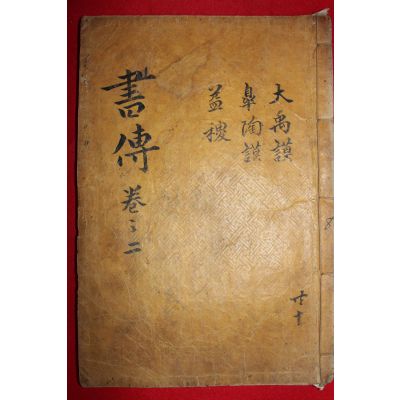 大禹謨
皐陶謨
益稷
書傳 卷之二
共十